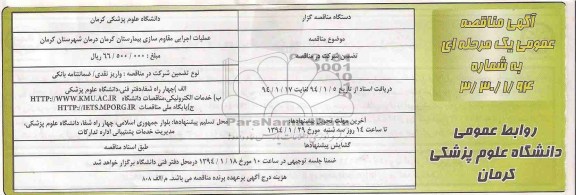 آگهی مناقصه
عمومی یک مرحله ای
به شماره
۳/۳۰/۱/۹۴
روابط عمومی
دانشگاه علوم پزشکی
کرمان
دستگاه مناقصه گزار
دانشگاه علوم پزشکی کرمان
موضوع مناقصه
عملیات اجرایی مقاوم سازی بیمارستان کرمان درمان شهرستان کرمان
تضمین شرکت در مناقصه
مبلغ: ۶۶/۵۰۰/۰۰۰ ریال
نوع تضمین شرکت در مناقصه : واریز نقدی/ ضمانتنامه بانکی
دریافت اسناد از تاریخ ۹۴/۱/۵ لغایت ۹۴/۱/۱۷
الف )چهار راه شفا/دفتر فنی/دانشگاه علوم پزشکی
ب) خدمات الکترونیکی/مناقصات دانشگاه HTTP://WWW.KMU.AC.IR
ج)پایگاه ملی مناقصات HTTP://IETS.MPORG.IR
آخرین مهلت تحویل پیشنهادها:
تا ساعت ۱۴ روز سه شنبه مورخ ۱۳۹۴/۱/۲۹
محل تسلیم پیشنهادها: بلوار جمهوری اسلامی، چهار راه شفا، دانشگاه علوم پزشکی، مدیریت خدمات پشتیبانی اداره تدارکات
گشایش پیشنهادها
طبق اسناد مناقصه
ضمنا جلسه توجیهی در ساعت ۱۰ مورخ ۱۳۹۴/۱/۱۸ درمحل دفتر فنی دانشگاه برگزار خواهد شد
هزینه درج آگهی برعهده برنده مناقصه می باشد. م الف ۸۰۸
ParsNamadData